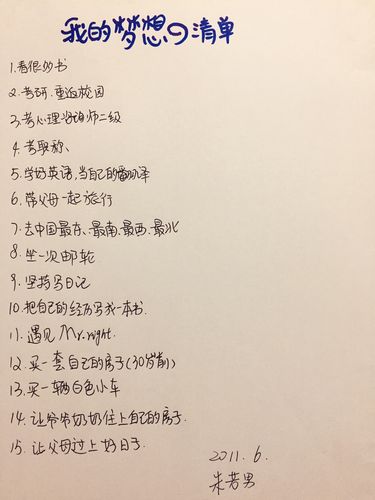 我的梦想の清单
1.看很多书
2.考研.重返校园
3.考心理咨询师二级
4.考职称、
5.学好英语,当自己的翻译
6.带父母一起旅行
7.去中国最东、最南、最西、最北
8.坐一次邮轮
9.坚持写日记
10.把自己的经历写成一本书.
11.遇见Mr.right.
12.买一套自己的房子(30岁前)
13.买一辆白色小车
14.让爷爷奶奶住上自己的房子.
15.让父母过上好日子.
2011.6.
朱芳男